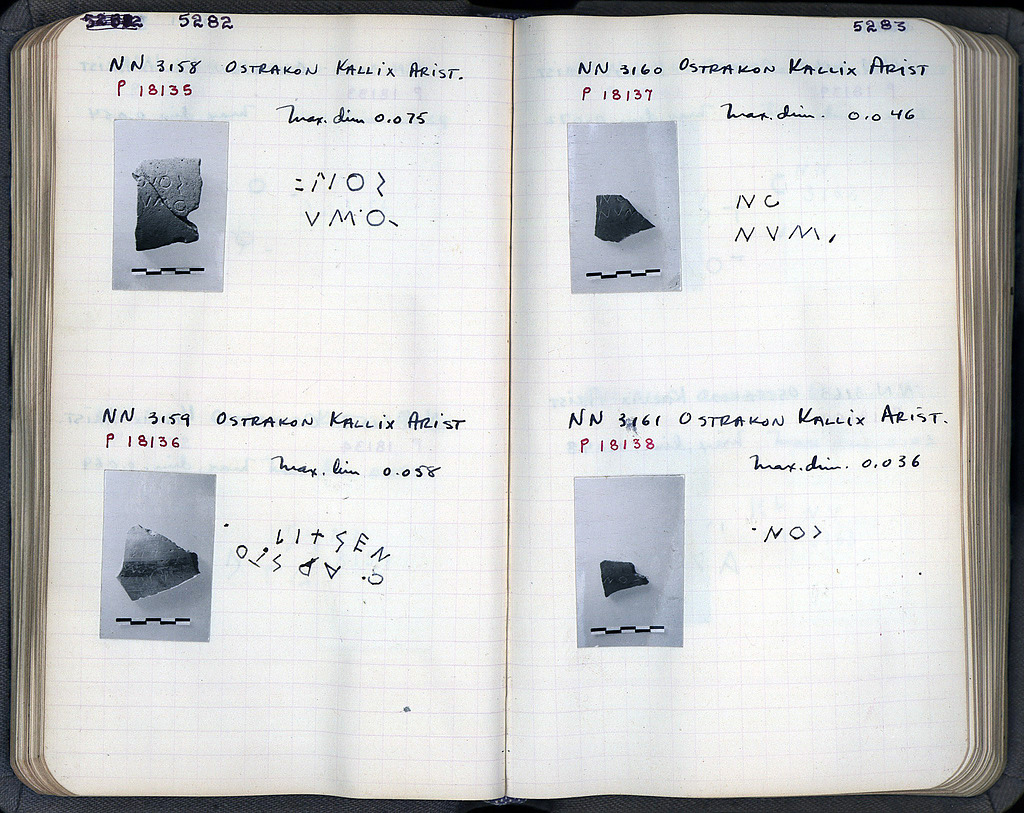 5282
NN 3158 OSTRAKON KALLIX ARIST.
P 18135
Max. dim 0.075
NOΣ
VMO
NN 3159 OSTRAKON KALLIX ARIST
P 18136
Max. dim 0.058
5283
NN 3160 OSTRAKON KALLIX ARIST
P 18137
Max. dim. 0.046
NC
NVM
NN 3161 OSTRAKON KALLIX ARIST.
P 18138
Max. dim. 0.036
NO>